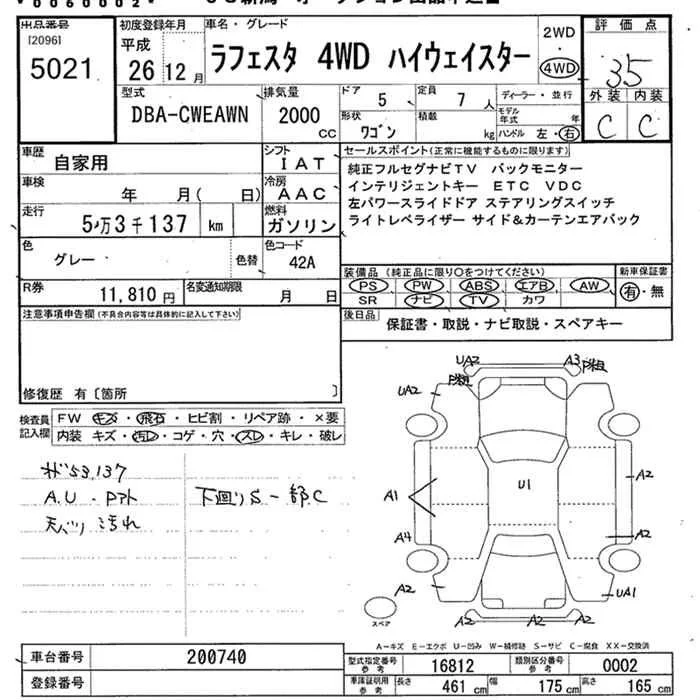 出品番号 [2096] 5021
初度登録年月 平成 26 12月
車名・グレード ラフェスタ 4WD ハイウェイスター
2WD ・ 4WD
評価点 35
外装 内装
C C
型式 DBA-CWEAWN
排気量 2000 CC
ドア 5
定員 7 人
ディーラー・並行
形状 ワゴン
積載 kg
モデル年式 年
ハンドル 左・右
車歴 自家用
シフト IAT
車検 年 月( 日)
冷房 AAC
走行 5万3千137 km
燃料 ガソリン
色 グレー
色替
色コード 42A
R券 11,810 円
名変通知期限 月 日
セールスポイント(正常に機能するものに限ります)
純正フルセグナビTV バックモニター
インテリジェントキー ETC VDC
左パワースライドドア ステアリングスイッチ
ライトレベライザー サイド&カーテンエアバック
装備品(純正品に限り○をつけてください)
PS PW ABS エアB AW
SR ナビ TV カワ
新車保証書
有・無
後日品 保証書・取説・ナビ取説・スペアキー
注意事項申告欄(不具合内容等は具体的に記入して下さい)
修復歴 有〔箇所 〕
検査員記入欄
FW キズ・飛石・ヒビ割・リペア跡・×要
内装 キズ・汚レ・コゲ・穴・スレ・キレ・破レ
53,137
A.U
下回りS 部C
汚れ
UA2 A3
UA2
A1 U1 A2
A4 A2
A2 UA1
A2 A2
スペア
A-キズ E-エクボ U-凹み W-補修跡 S-サビ C-腐食 XX-交換済
車台番号 200740
登録番号
型式指定番号参考 16812
類別区分番号参考 0002
車庫証明用参考 長さ 461 cm 幅 175 cm 高さ 165 cm